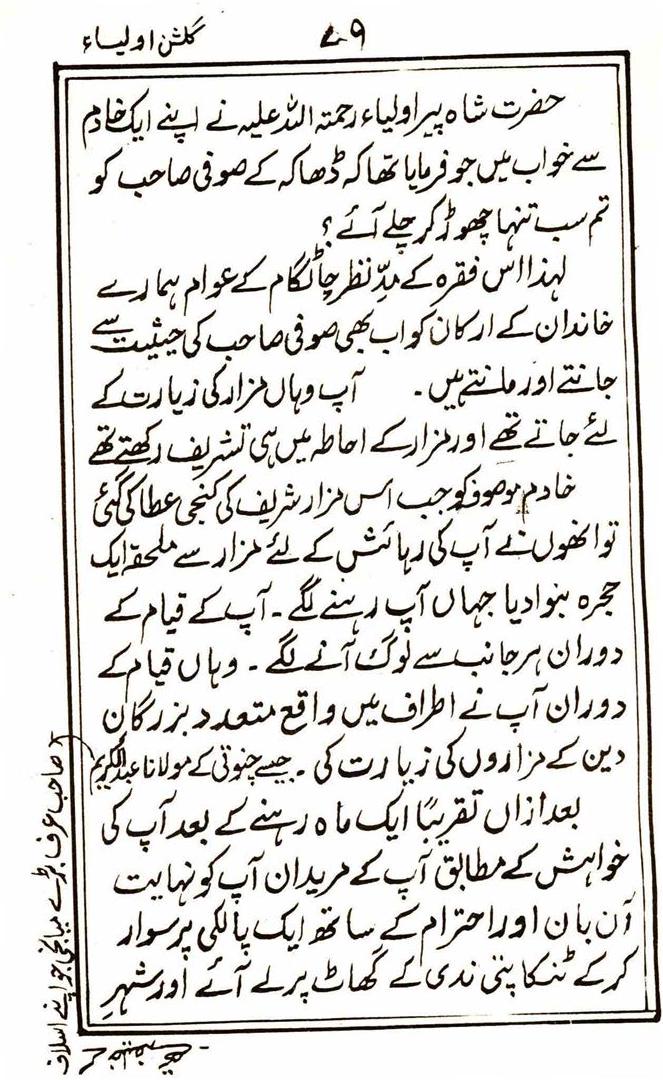 گلشن اولیاء
۷۹
حضرت شاہ پیر اولیاء رحمتہ اللہ علیہ نے اپنے ایک خادم
سے خواب میں جو فرمایا تھا کہ ڈھاکہ کے صوفی صاحب کو
تم سب تنہا چھوڑ کر چلے آئے ؟
لہذا اس فقرہ کے مدِّ نظر چاٹگام کے عوام ہمارے
خاندان کے ارکان کو اب بھی صوفی صاحب کی حیثیت سے
جانتے اور مانتے ہیں ۔ آپ وہاں مزار کی زیارت کے
لئے جاتے تھے اور مزار کے احاطہ میں ہی تشریف رکھتے تھے
خادم موصوف کو جب اس مزار شریف کی کنجی عطا کی گئی
تو انھوں نے آپ کی رہائش کے لئے مزار سے ملحقہ ایک
حجرہ بنوا دیا جہاں آپ رہنے لگے ۔ آپ کے قیام کے
دوران ہر جانب سے لوگ آنے لگے ۔ وہاں قیام کے
دوران آپ نے اطراف میں واقع متعدد بزرگان
دین کے مزاروں کی زیارت کی ۔ جیسے چنوتی کے مولانا عبدالکریم
بعد ازاں تقریباً ایک ماہ رہنے کے بعد آپ کی
خواہش کے مطابق آپ کے مریدان آپ کو نہایت
آن بان اور احترام کے ساتھ ایک پالکی پر سوار
کر کے ٹنکا پتی ندی کے گھاٹ پر لے آئے اور شہرِ
صاحب عرف بڑے میانجی جو اپنے اسلاف